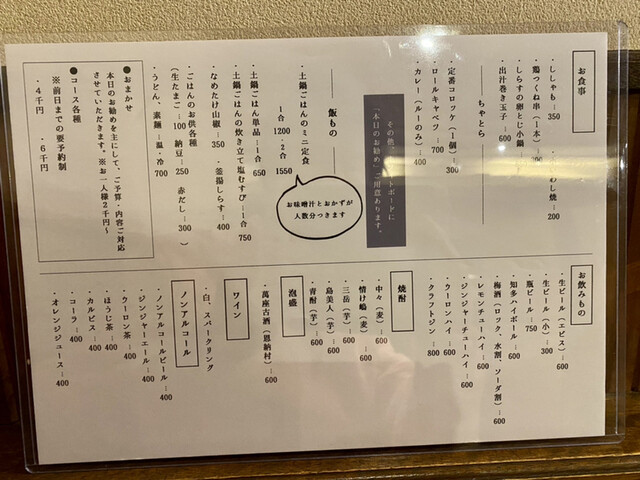 お食事
・ししゃも：350
わし焼：200
・鶏つくね串（1本）
・しらすの卵とじ小鍋
・出汁巻き玉子：600
―― ちゃとら ――
・定番コロッケ（1個）：300
・ロールキャベツ：700
・カレー（ルーのみ）：400
その他、
ボードに
「本日のお勧め」ご用意あります。
―― 飯もの ――
・土鍋ごはんのミニ定食
1合1200・2合1550
お味噌汁とおかずが
人数分つきます
・土鍋ごはん単品：1合650
・土鍋ごはんの炊き立て塩むすび：1合750
・なめたけ山椒：350 ・釜揚しらす：400
・ごはんのお供各種
（生たまご：100 納豆：250 赤だし：300）
・うどん、素麺：温・冷 700
●おまかせ
本日のお勧めを主にして、ご予算・内容ご対応
させていただきます。※お一人様2千円～
●コース各種
※前日までの要予約制
・4千円 ・6千円
お飲みもの
・生ビール（エビス）：600
・生ビール（小）：300
・瓶ビール：750
・知多ハイボール：600
・梅酒（ロック、水割、ソーダ割）：600
・レモンチューハイ：600
・ジンジャーチューハイ：600
・ウーロンハイ：600
・クラフトジン：800
焼酎
・中々（麦）：600
・情け嶋（麦）：600
・三岳（芋）：600
・島美人（芋）：600
・青酎（芋）：600
泡盛
・萬座古酒（恩納村）：600
ワイン
・白、スパークリング
ノンアルコール
・ノンアルコールビール：400
・ジンジャーエール：400
・ウーロン茶：400
・ほうじ茶：400
・カルピス：400
・コーラ：400
・オレンジジュース：400